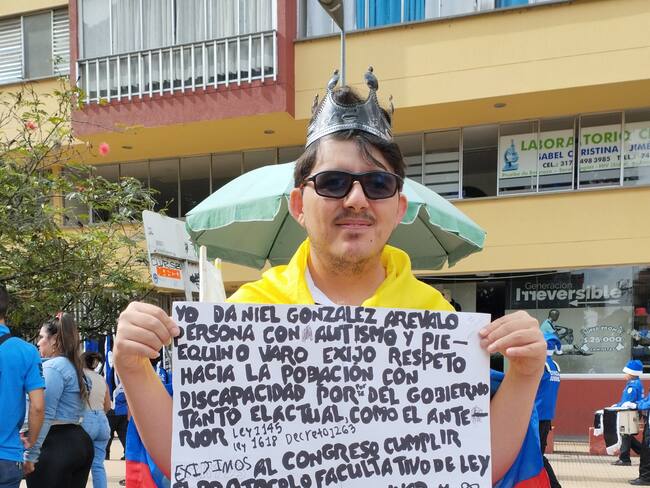 LABORATORIO C
ISABEL CRISTINA
CEL. 317
LABORATORIO
JIME
498 3985
Generación
Irreversible
$25.000
YO DANIEL GONZALEZ AREVALO
PERSONA CON AUTISMO Y PIE-
EQUINO VARO EXIJO RESPETO
HACIA LA POBLACIÓN CON
DISCAPACIDAD POR pte DEL GOBIERNO
TANTO EL ACTUAL, COMO EL ANTE
RIOR Ley 1145
Ley 1618 Decreto 1263
EXIJIMOS AL CONGRESO CUMPLIR
EL PROTOCOLO FACULTATIVO DE LEY